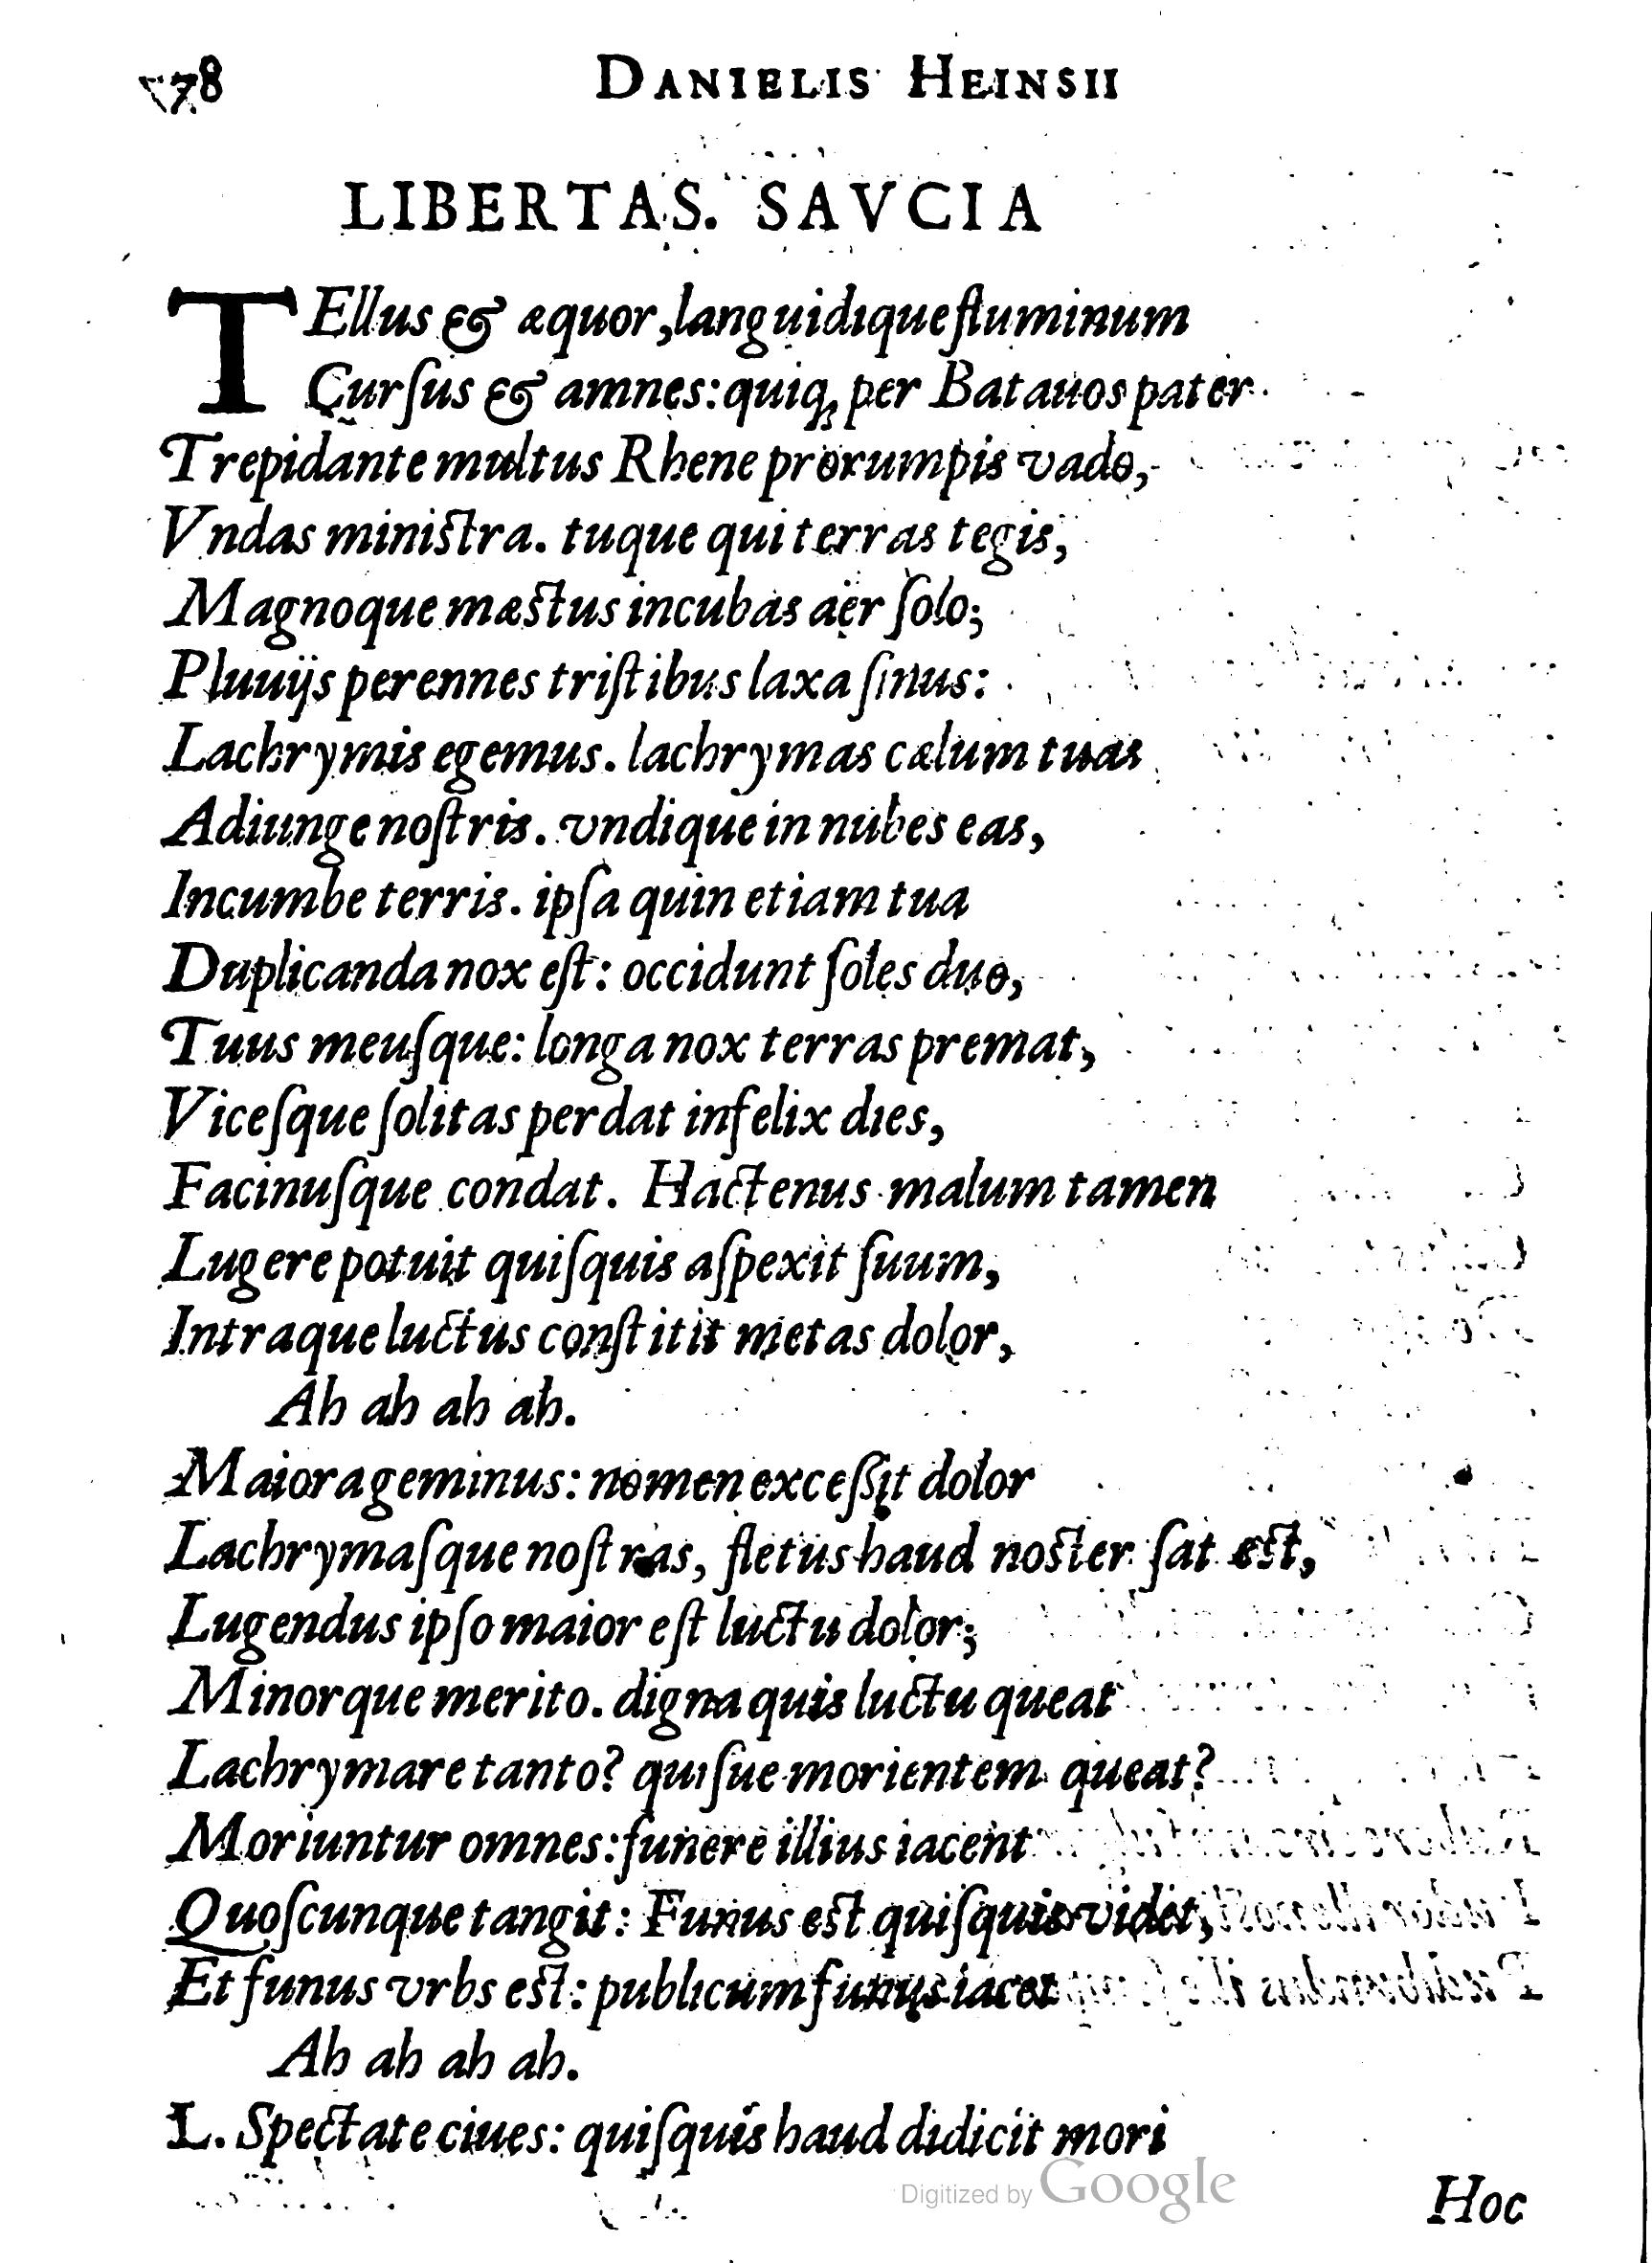 78 DANIELIS HEINSII
LIBERTAS. SAVCIA
TEllus & æquor, languidique fluminum
Curſus & amnes: quiq; per Batauos pater
Trepidante multus Rhene prorumpis vado,
Vndas miniſtra. tuque qui terras tegis,
Magnoque mæſtus incubas aër ſolo;
Pluuijs perennes triſtibus laxa ſinus:
Lachrymis egemus. lachrymas cælum tuas
Adiunge noſtris. vndique in nubes eas,
Incumbe terris. ipſa quin etiam tua
Duplicanda nox eſt: occidunt ſoles duo,
Tuus meuſque: longa nox terras premat,
Viceſque ſolitas perdat infelix dies,
Facinuſque condat. Hactenus malum tamen
Lugere potuit quiſquis aſpexit ſuum,
Intraque luctus conſtitit metas dolor,
Ah ah ah ah.
Maiora geminus: nomen exceſſit dolor
Lachrymaſque noſtras, fletus haud noſter ſat eſt,
Lugendus ipſo maior eſt luctu dolor;
Minorque merito. digna quis luctu queat
Lachrymare tanto? quiſue morientem queat?
Moriuntur omnes: funere illius iacent
Quoſcunque tangit: Funus eſt quiſquis videt,
Et funus vrbs eſt: publicum funus iacet
Ah ah ah ah.
L. Spectate ciues: quiſquis haud didicit mori
Digitized by Google
Hoc